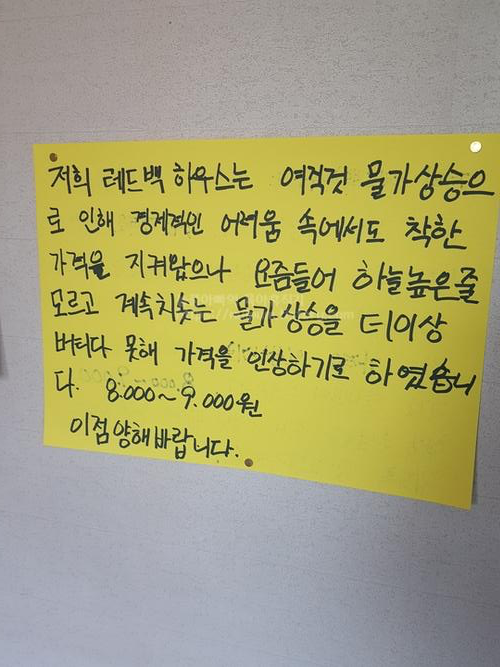 저희 레드백 하우스는 여직것 물가상승으
로 인해 경제적인 어려움 속에서도 착한
가격을 지켜왔으나 요즘들어 하늘높은줄
모르고 계속치솟는 물가상승을 더이상
버티다 못해 가격을 인상하기로 하였습니
다. 8.000~9.000원
이점양해바랍니다.